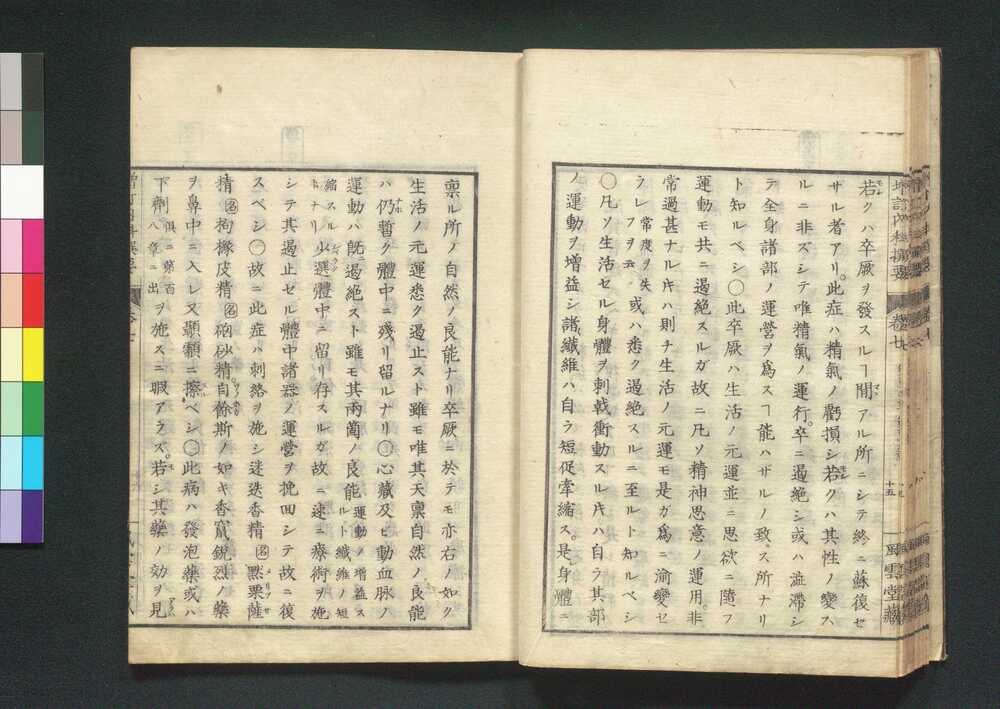 増訂内科撰要 卷七 十五 風雲堂藏
若クハ卒厥ヲ發スルヿ間アル所ニシテ終ニ蘇復セ
サル者アリ。此症ハ精氣ノ虧損シ若クハ其性ノ變ス
ルニ非ズシテ唯精氣ノ運行。卒ニ遏絶シ或ハ澁滯シ
テ全身諸部ノ運營ヲ爲スヿ能ハザルノ致ス所ナリ
ト知ルベシ〇此卒厥ハ生活ノ元運並ニ思欲ニ隨フ
運動モ共ニ遏絶スルガ故ニ凡ソ精神思意ノ運用。非
常過甚ナルキハ則チ生活ノ元運モ是ガ爲ニ渝變セ
ラレ常度ヲ失フヲ云或ハ悉ク遏絶スルニ至ルト知ルベシ
〇凡ソ生活セル身體ヲ刺戟衝動スルキハ自ラ其部
ノ運動ヲ增益シ諸纖維ハ自ラ短促牽縮ス。是身體ニ
禀ル所ノ自然ノ良能ナリ卒厥ニ於テモ亦右ノ如ク
生活ノ元運悉ク遏止スト雖モ唯其天禀自然ノ良能
ハ仍暫ク體中ニ殘リ留ルナリ〇心藏及ヒ動血脉ノ
運動ハ既ニ遏絶スト雖モ其兩箇ノ良能運動ノ增益スルト纖維ノ短縮スルトナリ少選體中ニ留リ存スルガ故ニ速ニ療術ヲ施
シテ其遏止セル體中諸器ノ運營ヲ挽回シテ故ニ復
スベシ〇故ニ此症ハ刺絡ヲ施シ迷迭香精名㸃栗薩
精名拘櫞皮精名硇砂精自餘斯ノ如キ香竄銳烈ノ藥
ヲ鼻中ニ入レ又顳顬ニ擦ベシ〇此病ハ發泡藥或ハ
下劑俱ニ第百八章ニ出ヲ施スニ暇アラズ。若シ其藥ノ効ヲ見